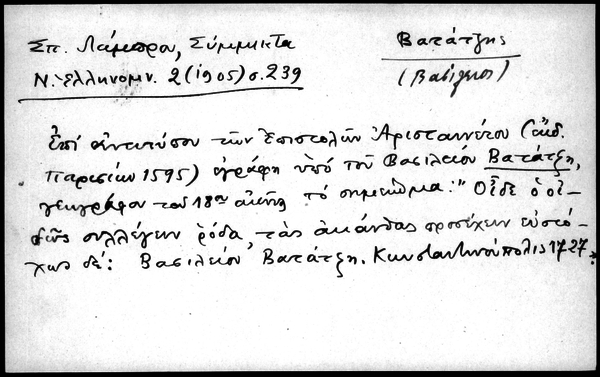 Σπ. Λάμπρου, Σύμμικτα
Βατάτζης
Ν. Ἑλληνομν. 2 (1905) σ. 239
(Βασίλειος)
Ἐπί ἀντιτύπου τῶν Ἐπιστολῶν Ἀρισταινέτου (ἐκδ.
Παρισίων 1595) ἐγράφη ὑπό τοῦ Βασιλείου Βατάτζη,
γεωγράφου τοῦ 18ου αἰῶνος τό σημείωμα: "Οἶδε ὁ εἰ-
δώς συλλέγειν ῥόδα, τάς ἀκάνθας προσέχειν εὐστό-
χως δέ: Βασιλείου Βατάτζη. Κωνσταντινούπολις 1727.